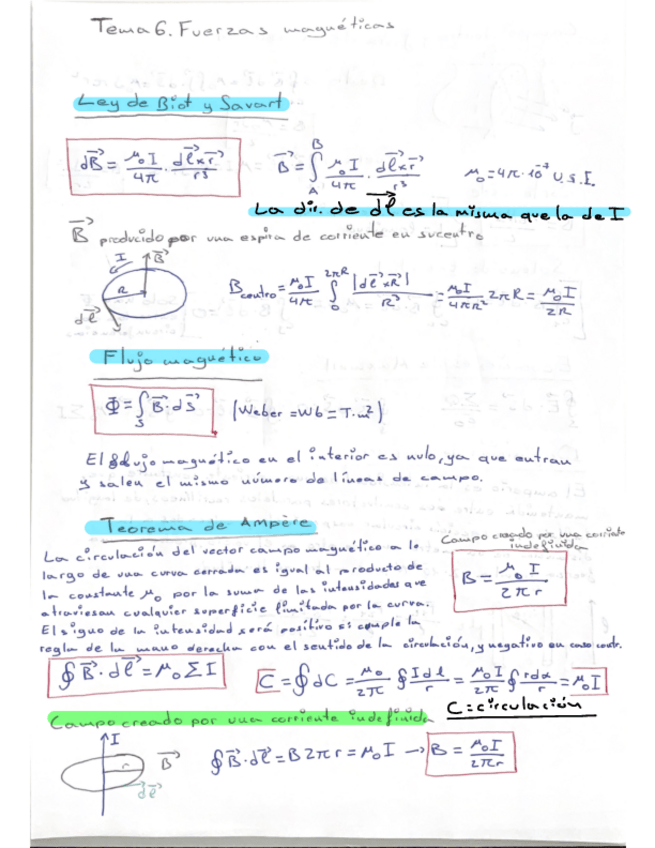 Tema 6. Fuerzas magnéticas
Ley de Biot y Savart
dB⃗ = μ₀I/4π · dl⃗×r⃗/r³   B⃗ = ∫_A^B μ₀I/4π · dl⃗×r⃗/r³   μ₀=4π·10⁻⁷ U.S.I.
La dir. de dl⃗ es la misma que la de I
B⃗ producido por una espira de corriente en su centro
I B⃗
R
dl⃗
B centro = μ₀I/4π ∫_0^{2πR} |dl⃗×R⃗|/R³ = μ₀I/4πR² 2πR = μ₀I/2R
Flujo magnético
Φ = ∫_S B⃗·dS⃗ (Weber = Wb = T·m²)
El flujo magnético en el interior es nulo, ya que entran
y salen el mismo número de líneas de campo.
Teorema de Ampère
Campo creado por una corriente
indefinida
B = μ₀I/2πr
La circulación del vector campo magnético a lo
largo de una curva cerrada es igual al producto de
la constante μ₀ por la suma de las intensidades que
atraviesan cualquier superficie limitada por la curva.
El signo de la intensidad será positivo si cumple la
regla de la mano derecha con el sentido de la circulación, y negativo en caso contr.
∮B⃗·dl⃗ = μ₀ΣI   C = ∮dC = μ₀/2π ∮ Idl/r = μ₀I/2π ∮ rdα/r = μ₀I
C = circulación
Campo creado por una corriente indefinida
I
r B⃗
dl⃗
∮B⃗·dl⃗ = B2πr = μ₀I → B = μ₀I/2πr